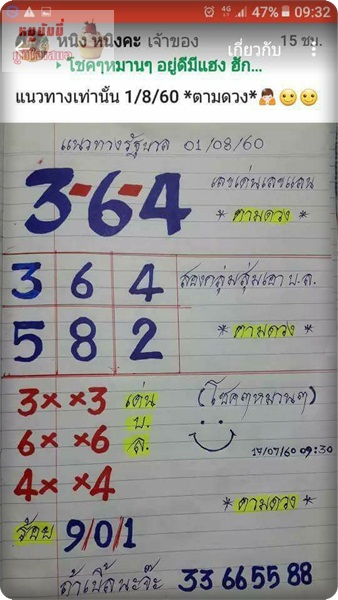 47% 09:32
หนิง หนิงคะ เจ้าของ 15 ชม.
โชคๆหมานๆ อยู่ดีมีแฮง ฮัก...
เกี่ยวกับ
แนวทางเท่านั้น 1/8/60 *ตามดวง*
แนวทางรัฐบาล 01/08/60
3-6-4
เลขเด่นเลขแลน
* ตามดวง *
3 6 4
สองกลุ่มสุ่มเอา บ.ล.
5 8 2
* ตามดวง *
3× ×3 เด่น (โชคๆหมานๆ)
6× ×6 บ. ล.
17/07/60 09:30
4× ×4
* ตามดวง *
ร้อย 9/0/1
ถ้าเบิ้ลนะจ๊ะ 33 66 55 88